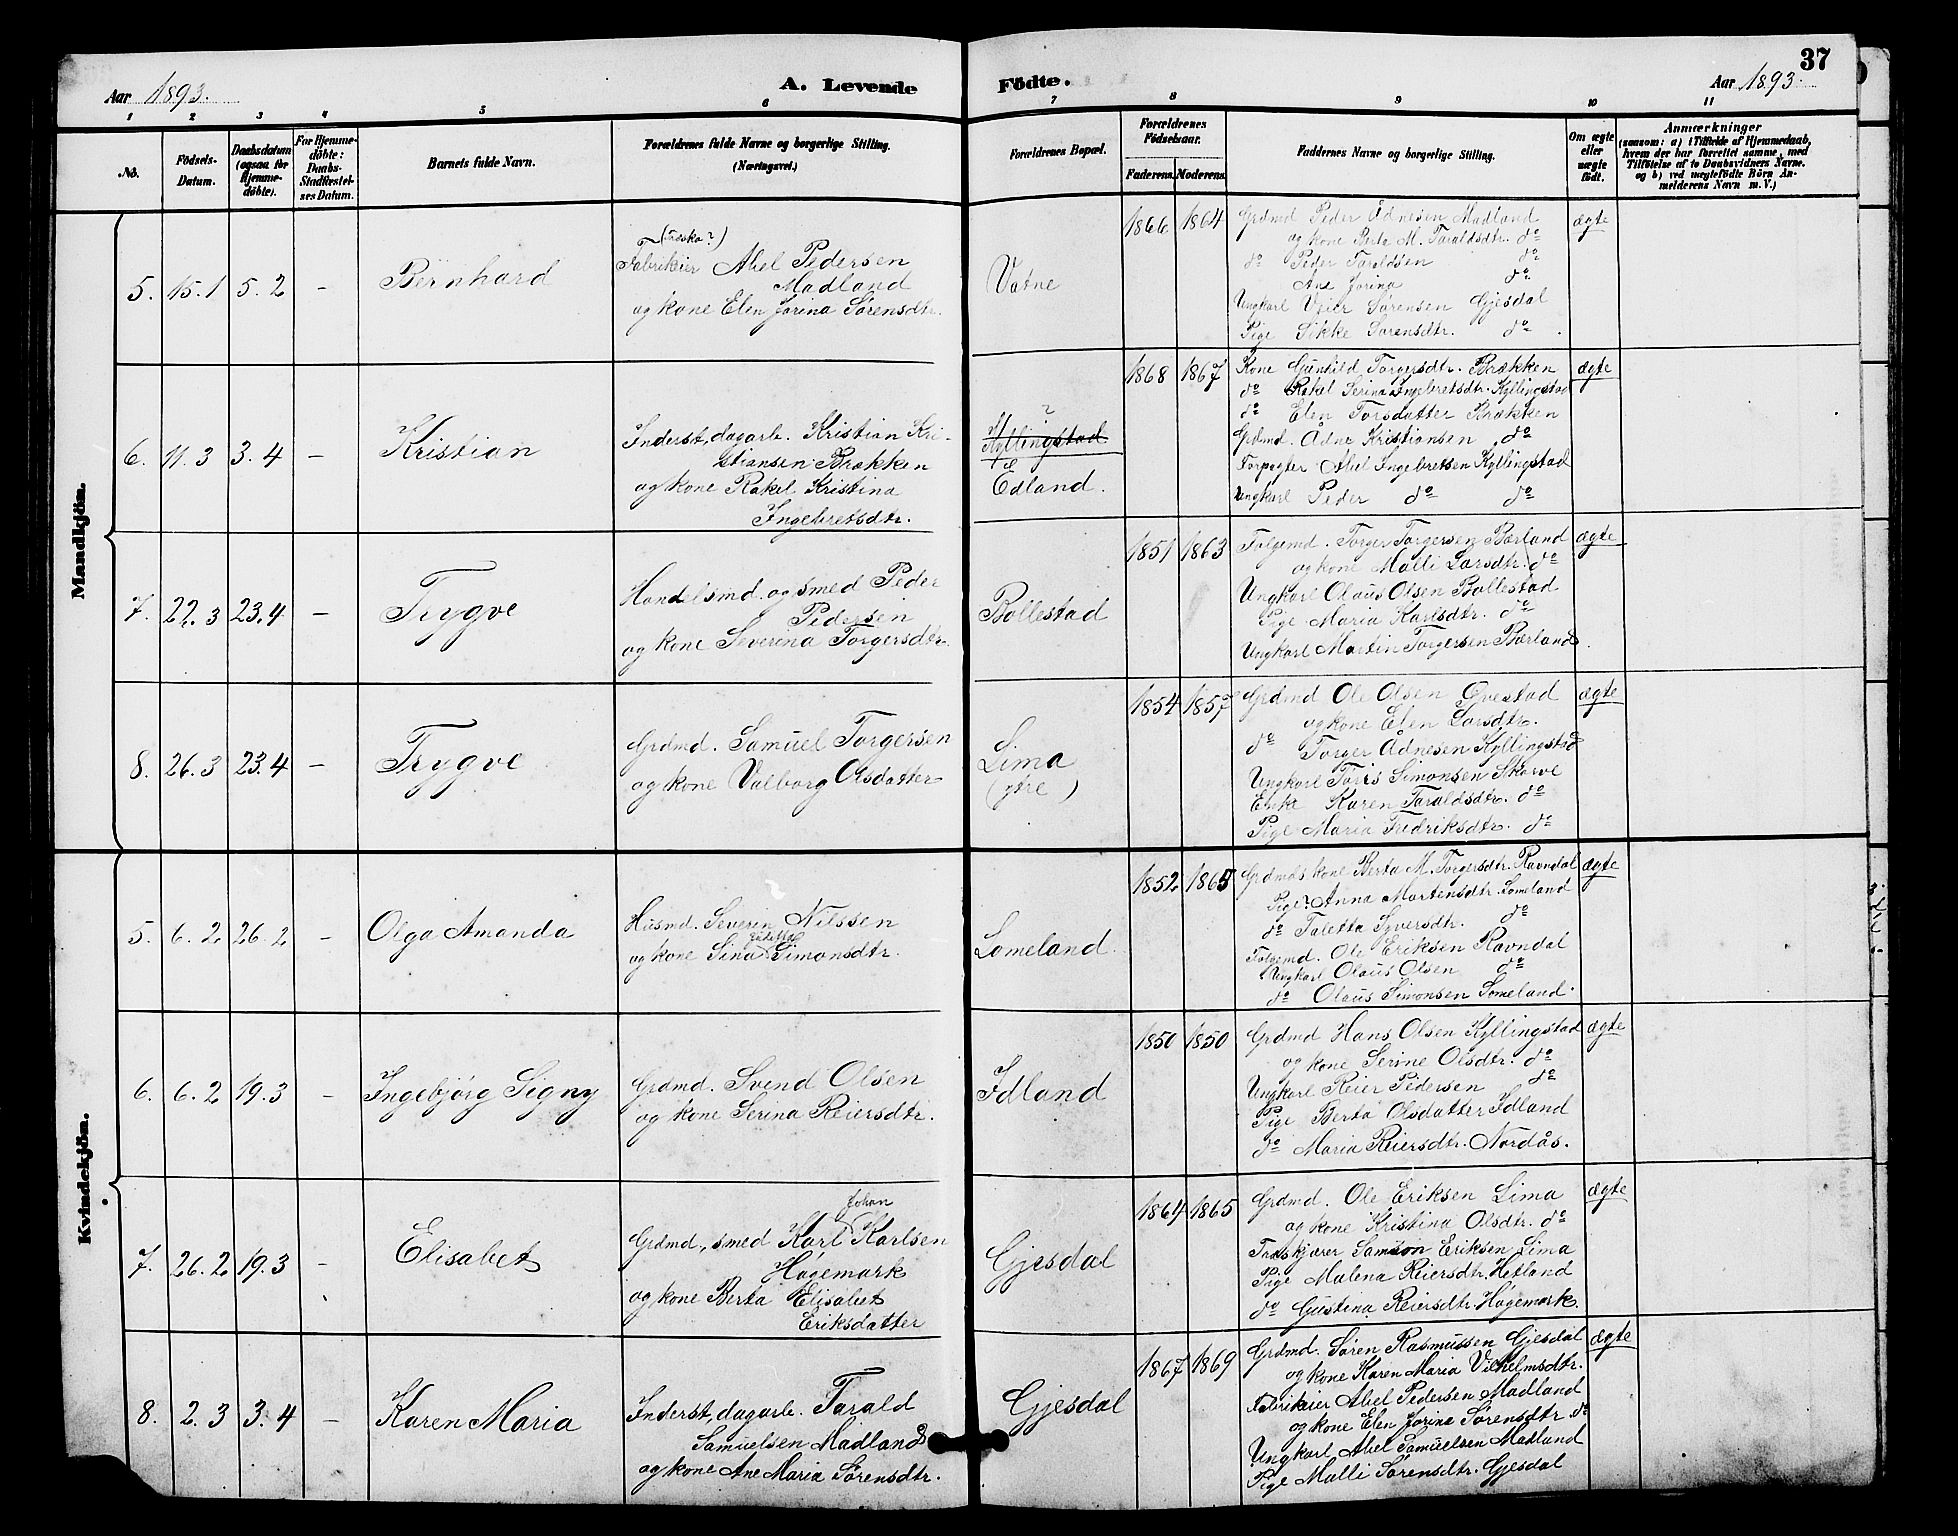 37
Aar 1893.
A. Levende Födte.
Aar 1893.
1 2 3 4 5 6 7 8 9 10 11
No.
Födsels-Datum.
Daabsdatum (ogsaa for Hjemme-döbte).
For Hjemme-döbte: Daabs-Stadfæstel-ses Datum.
Barnets fulde Navn.
Forældrenes fulde Navne og borgerlige Stilling. (Næringsvei.)
Forældrenes Bopæl.
Forældrenes Födselsaar.
Faderens. Moderens.
Faddernes Navne og borgerlige Stilling.
Om ægte eller uægte födt.
Anmærkninger
(saasom: a) i Tilfælde af Hjemmedaab, hvem der har forrettet samme, med Tilföielse af to Daabsvidners Navne. og b) ved uægtefödte Börn An-melderens Navn m. V.)
Mandkjön.
5. 15.1 5.2 – Bernhard
Fabrikeier Abel Pedersen
Madland
og kone Elen Jorina Sørensdtr.
Vatne
1866 1864
Grdmd Peder Ådnesen Madland
og kone Berta M. Taraldsdtr. do
do Peder Taraldsen do
Ane Jorina do
Ungkarl Veier Sørensen Gjesdal
Pige Sikke Sørensdtr. do
ægte
6. 11.3 3.4 – Kristian
Inderst, dagarb. Kristian Kri-
stiansen Brækken
og kone Rakel Kristina
Ingebretsdtr.
?
Kyllingstad
Edland.
1868 1867
Kone Gunhild Torgersdtr. Brækken
do Rakel Serina Ingebretsdtr. Kyllingstad
do Elen Torsdatter Brækken
Grdmd. Ådne Kristiansen do
Forpagter Abel Ingebretsen Kyllingstad
Ungkarl Peder do do
ægte
7. 22.3 23.4 – Trygve
Handelsmd. og smed Peder
Pedersen
og kone Severina Torgersdtr.
Bollestad
1851 1863
Folgemd. Torger Torgersen Bærland
og kone Malli Larsdtr. do
Ungkarl Olaus Olsen Bollestad
Pige Maria Karlsdtr. do
Ungkarl Martin Torgersen Bærland.
ægte
8. 26.3 23.4 – Trygve
Grdmd. Samuel Torgersen
og kone Valborg Olsdatter
Lima
(ytre)
1854 1857
Grdmd Ole Olsen Øvestad
og kone Elen Larsdtr.
do Torger Ådnesen Kyllingstad
Ungkarl Tøris Simonsen Skarve
Enke Karen Taraldsdtr. do
Pige Maria Fredriksdtr. do
ægte
Kvindekjön.
5. 6.2 26.2 – Olga Amanda
Husmd. Severin Nilssen
og kone Sina Simonsdtr.
Lomeland.
1852 1865
Grdmds kone Berta M. Torgersdtr. Ravndal
Pige? Anna Mortensdtr. Lomeland
do Taletta Syversdtr. do
Folgemd. Ole Eriksen Ravndal
Ungkarl Olaus Olsen do
do Olaus Simonsen Lomeland.
ægte
6. 6.2 19.3 – Ingebjørg Signy
Grdmd. Svend Olsen
og kone Serina Reiersdtr.
Idland
1850 1850
Grdmd Hans Olsen Kyllingstad
og kone Serine Olsdtr. do
Ungkarl Reier Pedersen do
Pige Berta Olsdatter Idland
do Maria Reiersdtr. Nordås.
ægte
7. 26.2 19.3 – Elisabet
Johan
Grdmd, smed Karl Karlsen
Hagemark
og kone Berta Elisabet
Eriksdatter
Gjesdal
1864 1865
Grdmd. Ole Eriksen Lima
og kone Kristina Olsdtr. do
Samson Eriksen Lima
Pige Malena Reiersdtr. Hetland
do Gustina Reiersdtr. Hagemark.
ægte
8. 2.3 3.4 – Karen Maria
Inderst, dagarb. Tarald
Samuelsen Madland
og kone Ane Maria Sørensdtr.
Gjesdal
1867 1869
Grdmd. Søren Rasmussen Gjesdal
og kone Karen Maria Vilhelmsdtr.
Fabrikeier Abel Pedersen Madland
og kone Elen Jorina Sørensdtr do
Ungkarl Abel Samuelsen Madland
Pige Malli Sørensdtr. Gjesdal
ægte